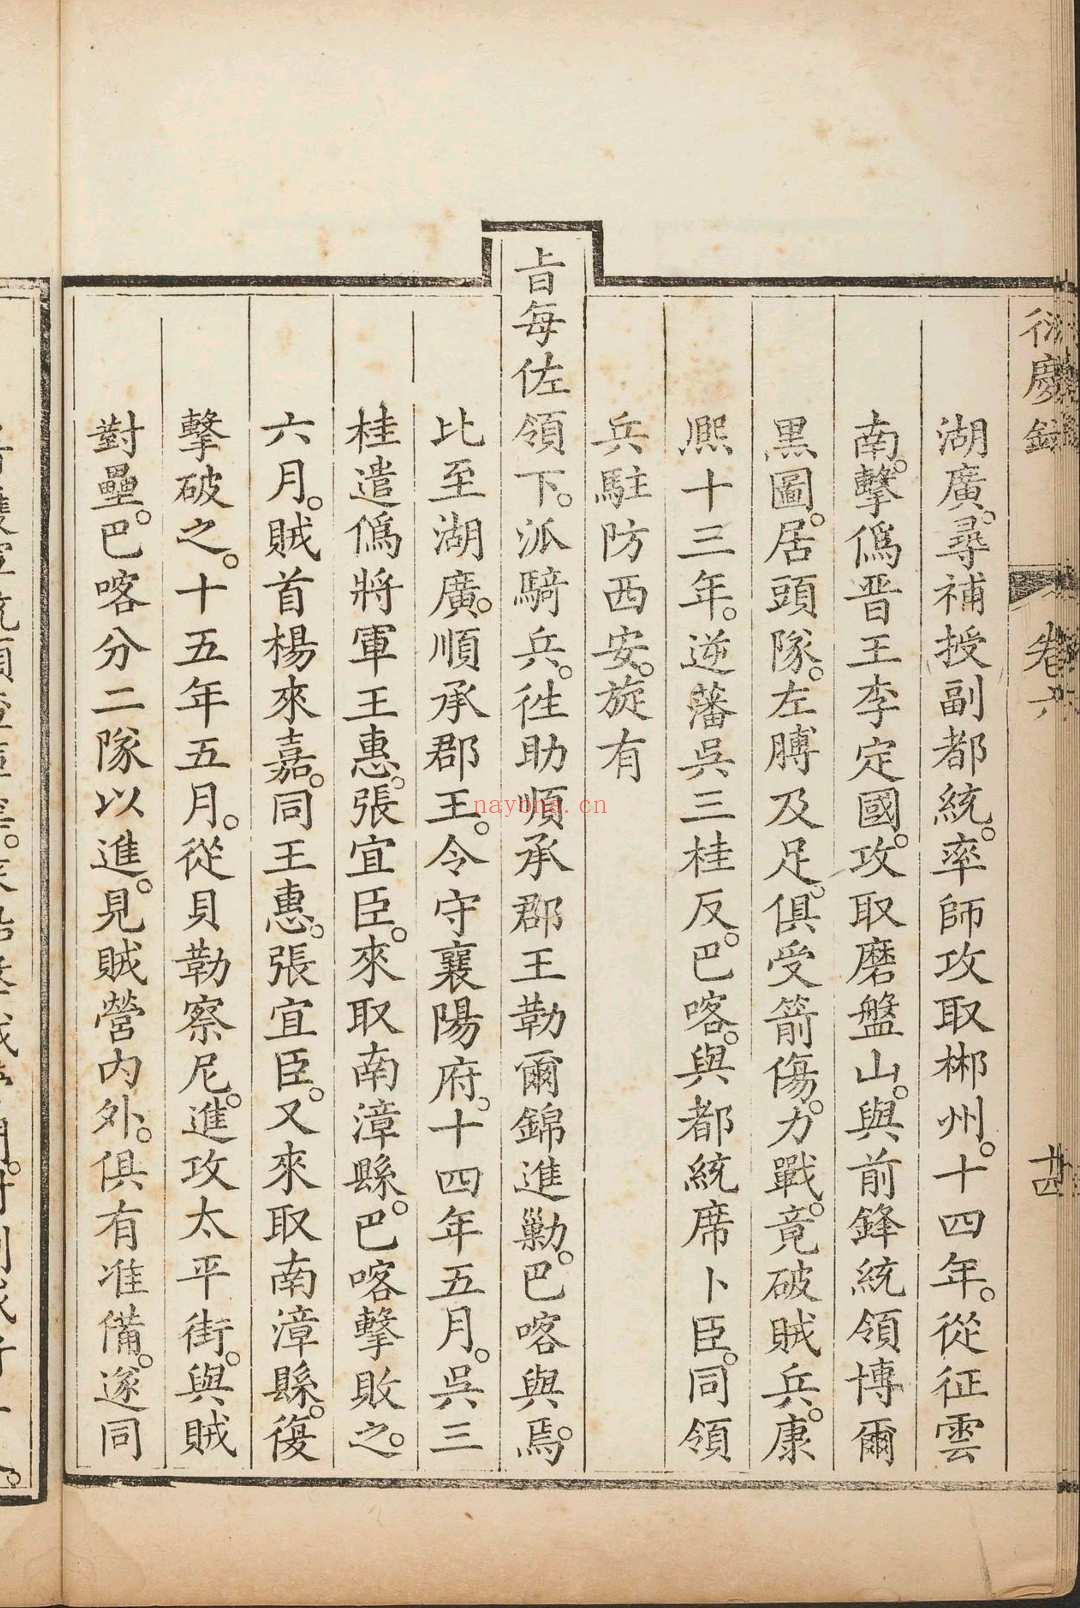 衍慶錄 卷六 十四
湖廣。尋補授副都統。率師攻取郴州。十四年。從征雲
南。擊僞晋王李定國。攻取磨盤山。與前鋒統領博爾
黑圖。居頭隊。左膊及足。俱受箭傷。力戰。竟破賊兵。康
熈十三年。逆藩吳三桂反。巴喀。與都統席卜臣。同領
兵駐防西安。旋有
旨每佐領下。派騎兵。徃助順承郡王勒爾錦進勦。巴喀與焉。
比至湖廣。順承郡王。令守襄陽府。十四年五月。吳三
桂遣僞將軍王惠。張宜臣。來取南漳縣。巴喀擊敗之。
六月。賊首楊來嘉。同王惠。張宜臣。又來取南漳縣。復
擊破之。十五年五月。從貝勒察尼。進攻太平街。與賊
對壘。巴喀分二隊以進。見賊營内外。俱有准備。遂同
nayong.cn